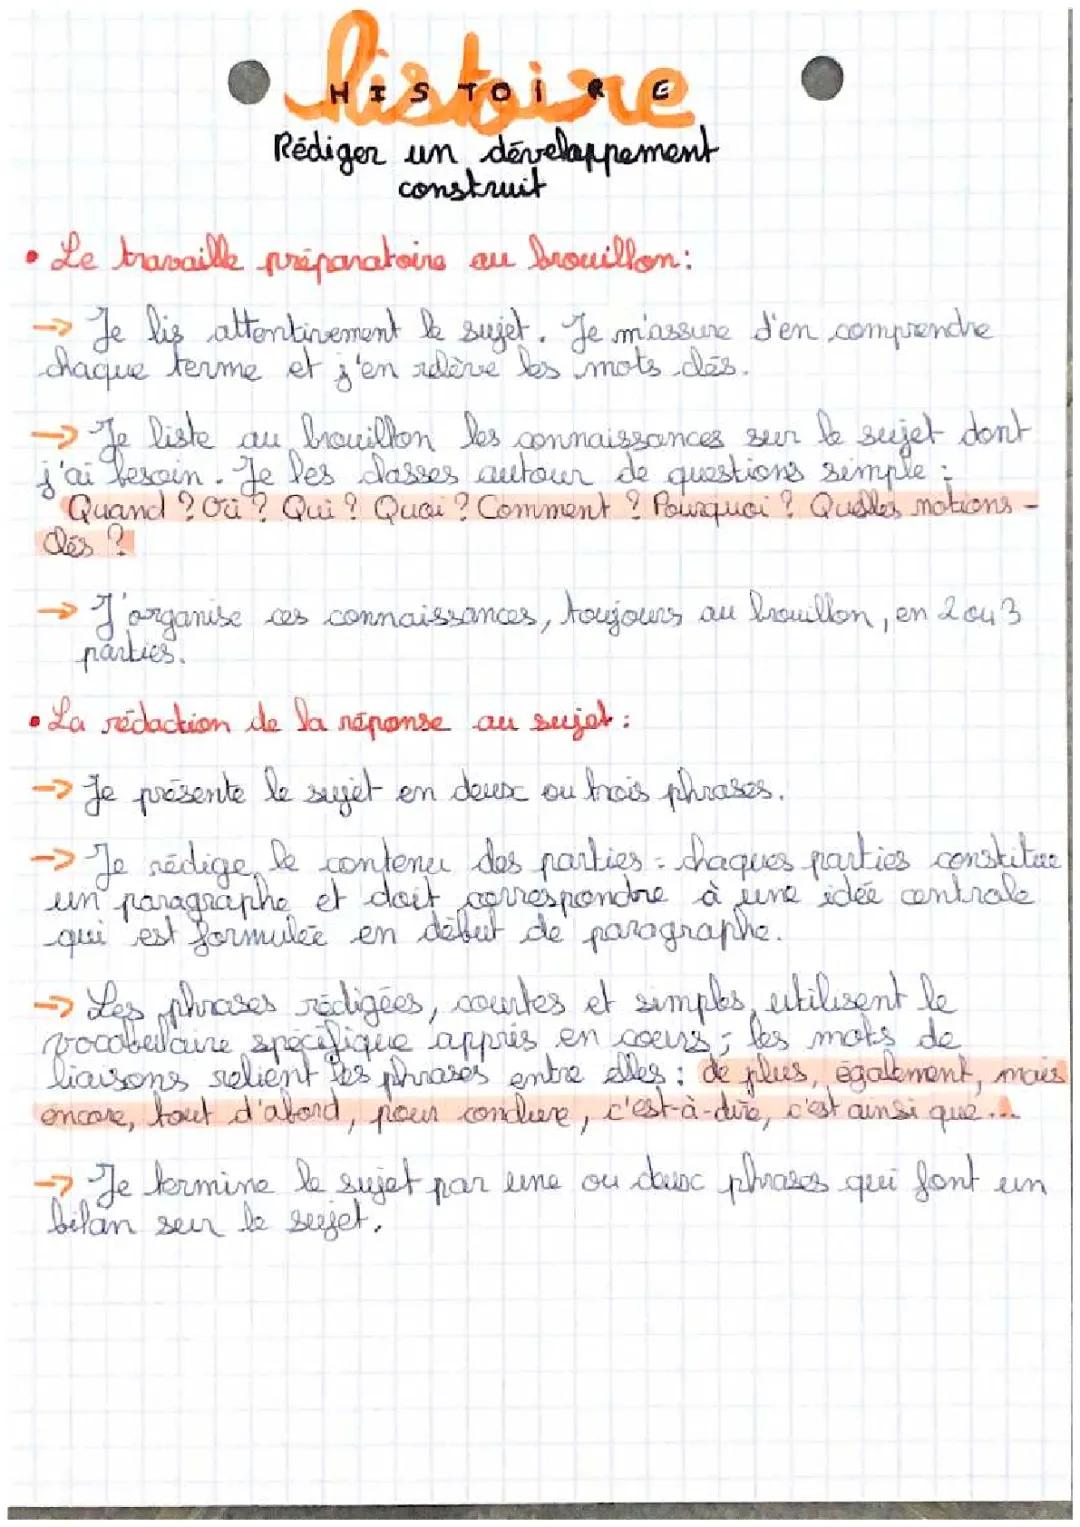 histoire
HISTOIRE
Rédiger un développement
construit
• Le travaille préparatoire au brouillon:
→ Je lis attentivement le sujet. Je m'assure d'en comprendre
chaque terme et j'en relève les mots clés.
→ Je liste au brouillon les connaissances sur le sujet dont
j'ai besoin. Je les classes autour de questions simple :
Quand ? Où ? Qui ? Quoi ? Comment ? Pourquoi ? Quelles notions -
clés ?
→ J'organise ces connaissances, toujours au brouillon, en 2 ou 3
parties.
• La rédaction de la réponse au sujet :
→ Je présente le sujet en deux ou trois phrases.
→ Je rédige le contenu des parties : chaques parties constitue
un paragraphe et doit correspondre à une idée centrale
qui est formulée en début de paragraphe.
→ Les phrases rédigées, courtes et simples, utilisent le
vocabulaire spécifique appris en cours ; les mots de
liaisons relient les phrases entre elles : de plus, également, mais
encore, tout d'abord, pour conclure, c'est-à-dire, c'est ainsi que...
→ Je termine le sujet par une ou deux phrases qui font un
bilan sur le sujet.